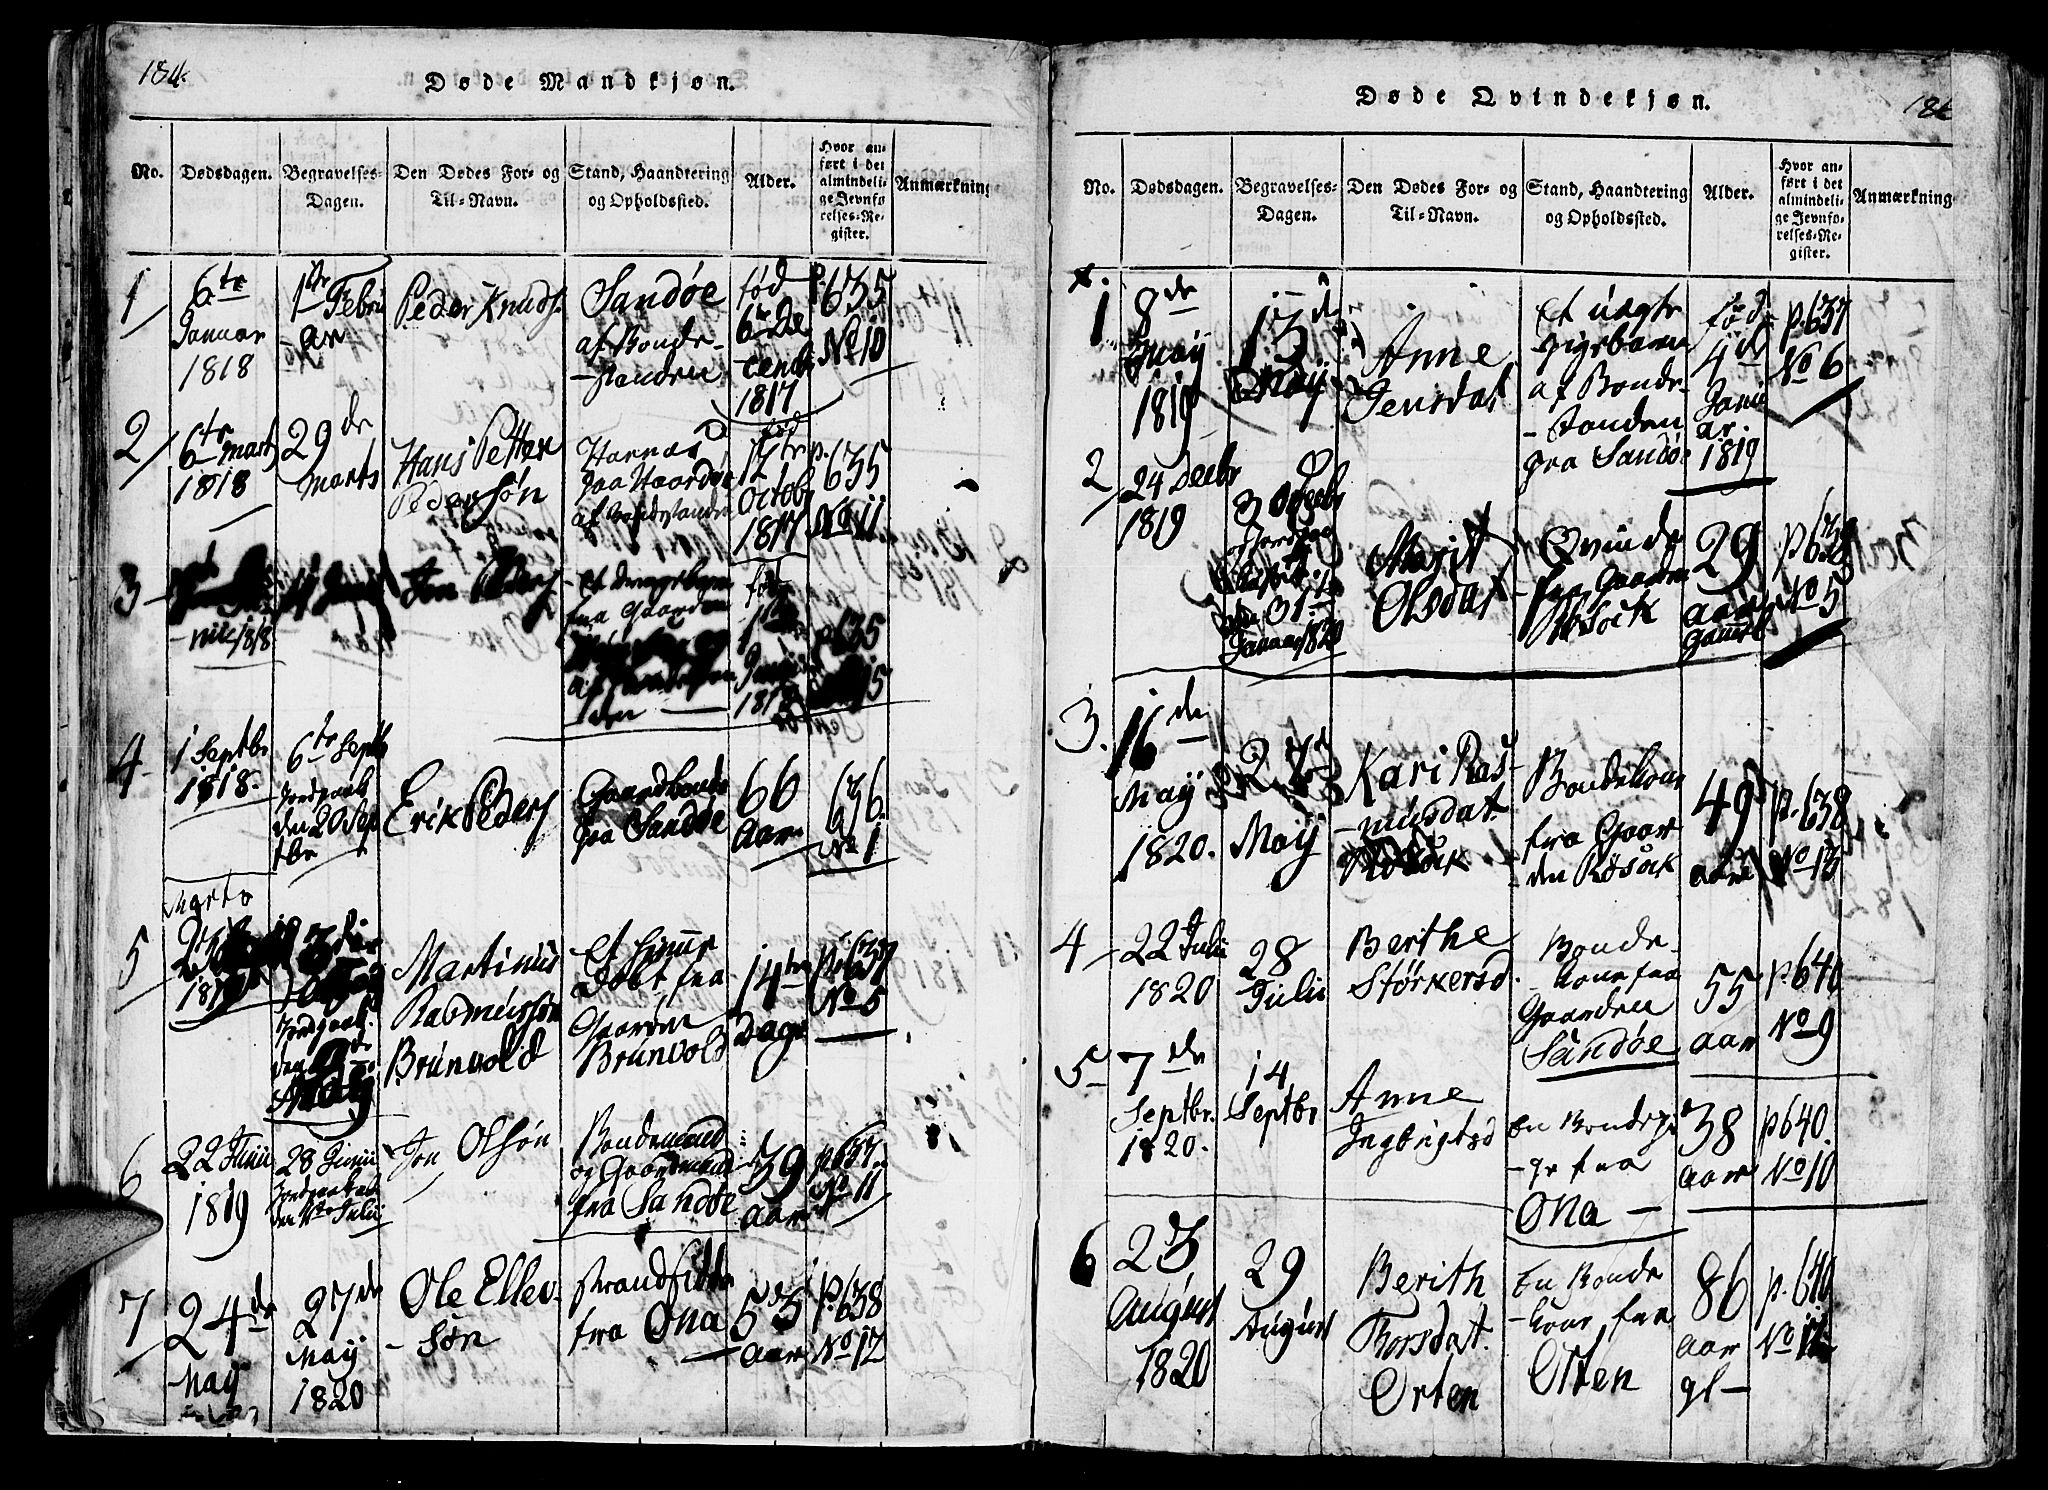 184
Døde Mandkjøn.
No.
Dødsdagen.
Begravelses-
Dagen.
Den Dødes For- og
Til-Navn.
Stand, Haandtering
og Opholdssted.
Alder.
Hvor an-
ført i det
almindeli-
ge Jevnfø-
relses-Re-
gister.
Anmærkning
1
6te
Januar
1818
1ste Febru
-ar
Peder Knuds.
Sandøe
af Bonde-
-standen
fød
6te De
-cemb.
1817
p. 635
No 10
2
6te Marts
1818
29de
Marts
Hans Petter
Pedersøn
Harnæs
paa Haardøe
fød
17te
Octob
1817
p.
635
No 11
3
1818
Jon Peders
-et drengebarn
fra Gaarden
fød
1ste
Junii
1818
p 635
15
4
1 Septbr
1818.
6te Septb
Jordpaak
den 20 Sep
tbr
Erik Peders
Gaardbonde
fra Sandøe
66
Aar
636.
No 1
5
Marts
Martinus
Rasmussøn
Brunvold
-et hjemme
døbt fra
Gaarden
Brunvold
14ten
Dage
p. 637
No 5
6
22 Junii
1819
28 Junii
Jordpaak.
den 11te Julii
Jon Olsøn
Bondemand
og Gaardmand
fra Sandøe
39
aar
p. 637
No 11
7
24de
May
27de
May
1820
Ole Ellev-
-søn
strandsidder
fra Ona
53
aar
p. 638
No 12
Døde Qvindekjøn.
No.
Dødsdagen.
Begravelses-
Dagen.
Den Dødes For- og
Til-Navn.
Stand, Haandtering
og Opholdssted.
Alder.
Hvor an-
ført i det
almindeli-
ge Jevnfø-
relses-Re-
gister.
Anmærkning
1
8de
May
1819
13de
May
Anne
Jensdat
et uægte
-pigebarn
af Bonde-
-standen
fra Sandøe
fød
4de
Janu
ar.
1819
p. 637
No 6
2
24 Decbr
1819
30 Decbr
den 31te
Januar 1820
Marit
Olsdat
Qvinde
-fra Gaarden
Røsok
29
aar
gammel
p 639
No 5
3.
16de
May
1820.
27de
May
Kari Ras-
-musdat.
Røsok
Bondekone
fra Gaar
-den Røsok
49
aar
p. 638
No 13
4
22 Julii
1820
28
Julii
Berthe
Størkersd.
Bonde-
-kone fra
Gaarden
Sandøe
55
aar
p. 640
No 9
5
7de
Septbr.
1820.
14
Septbr
Anne
Ingbrigtsd
En Bondepi
-ge fra
Ona
38
aar
p 640.
No 10
6
23
August
1820
29
August
Berith
Thorsdat.
Orten
En Bonde
-kone fra
Orten
86
aar
gl
p. 640